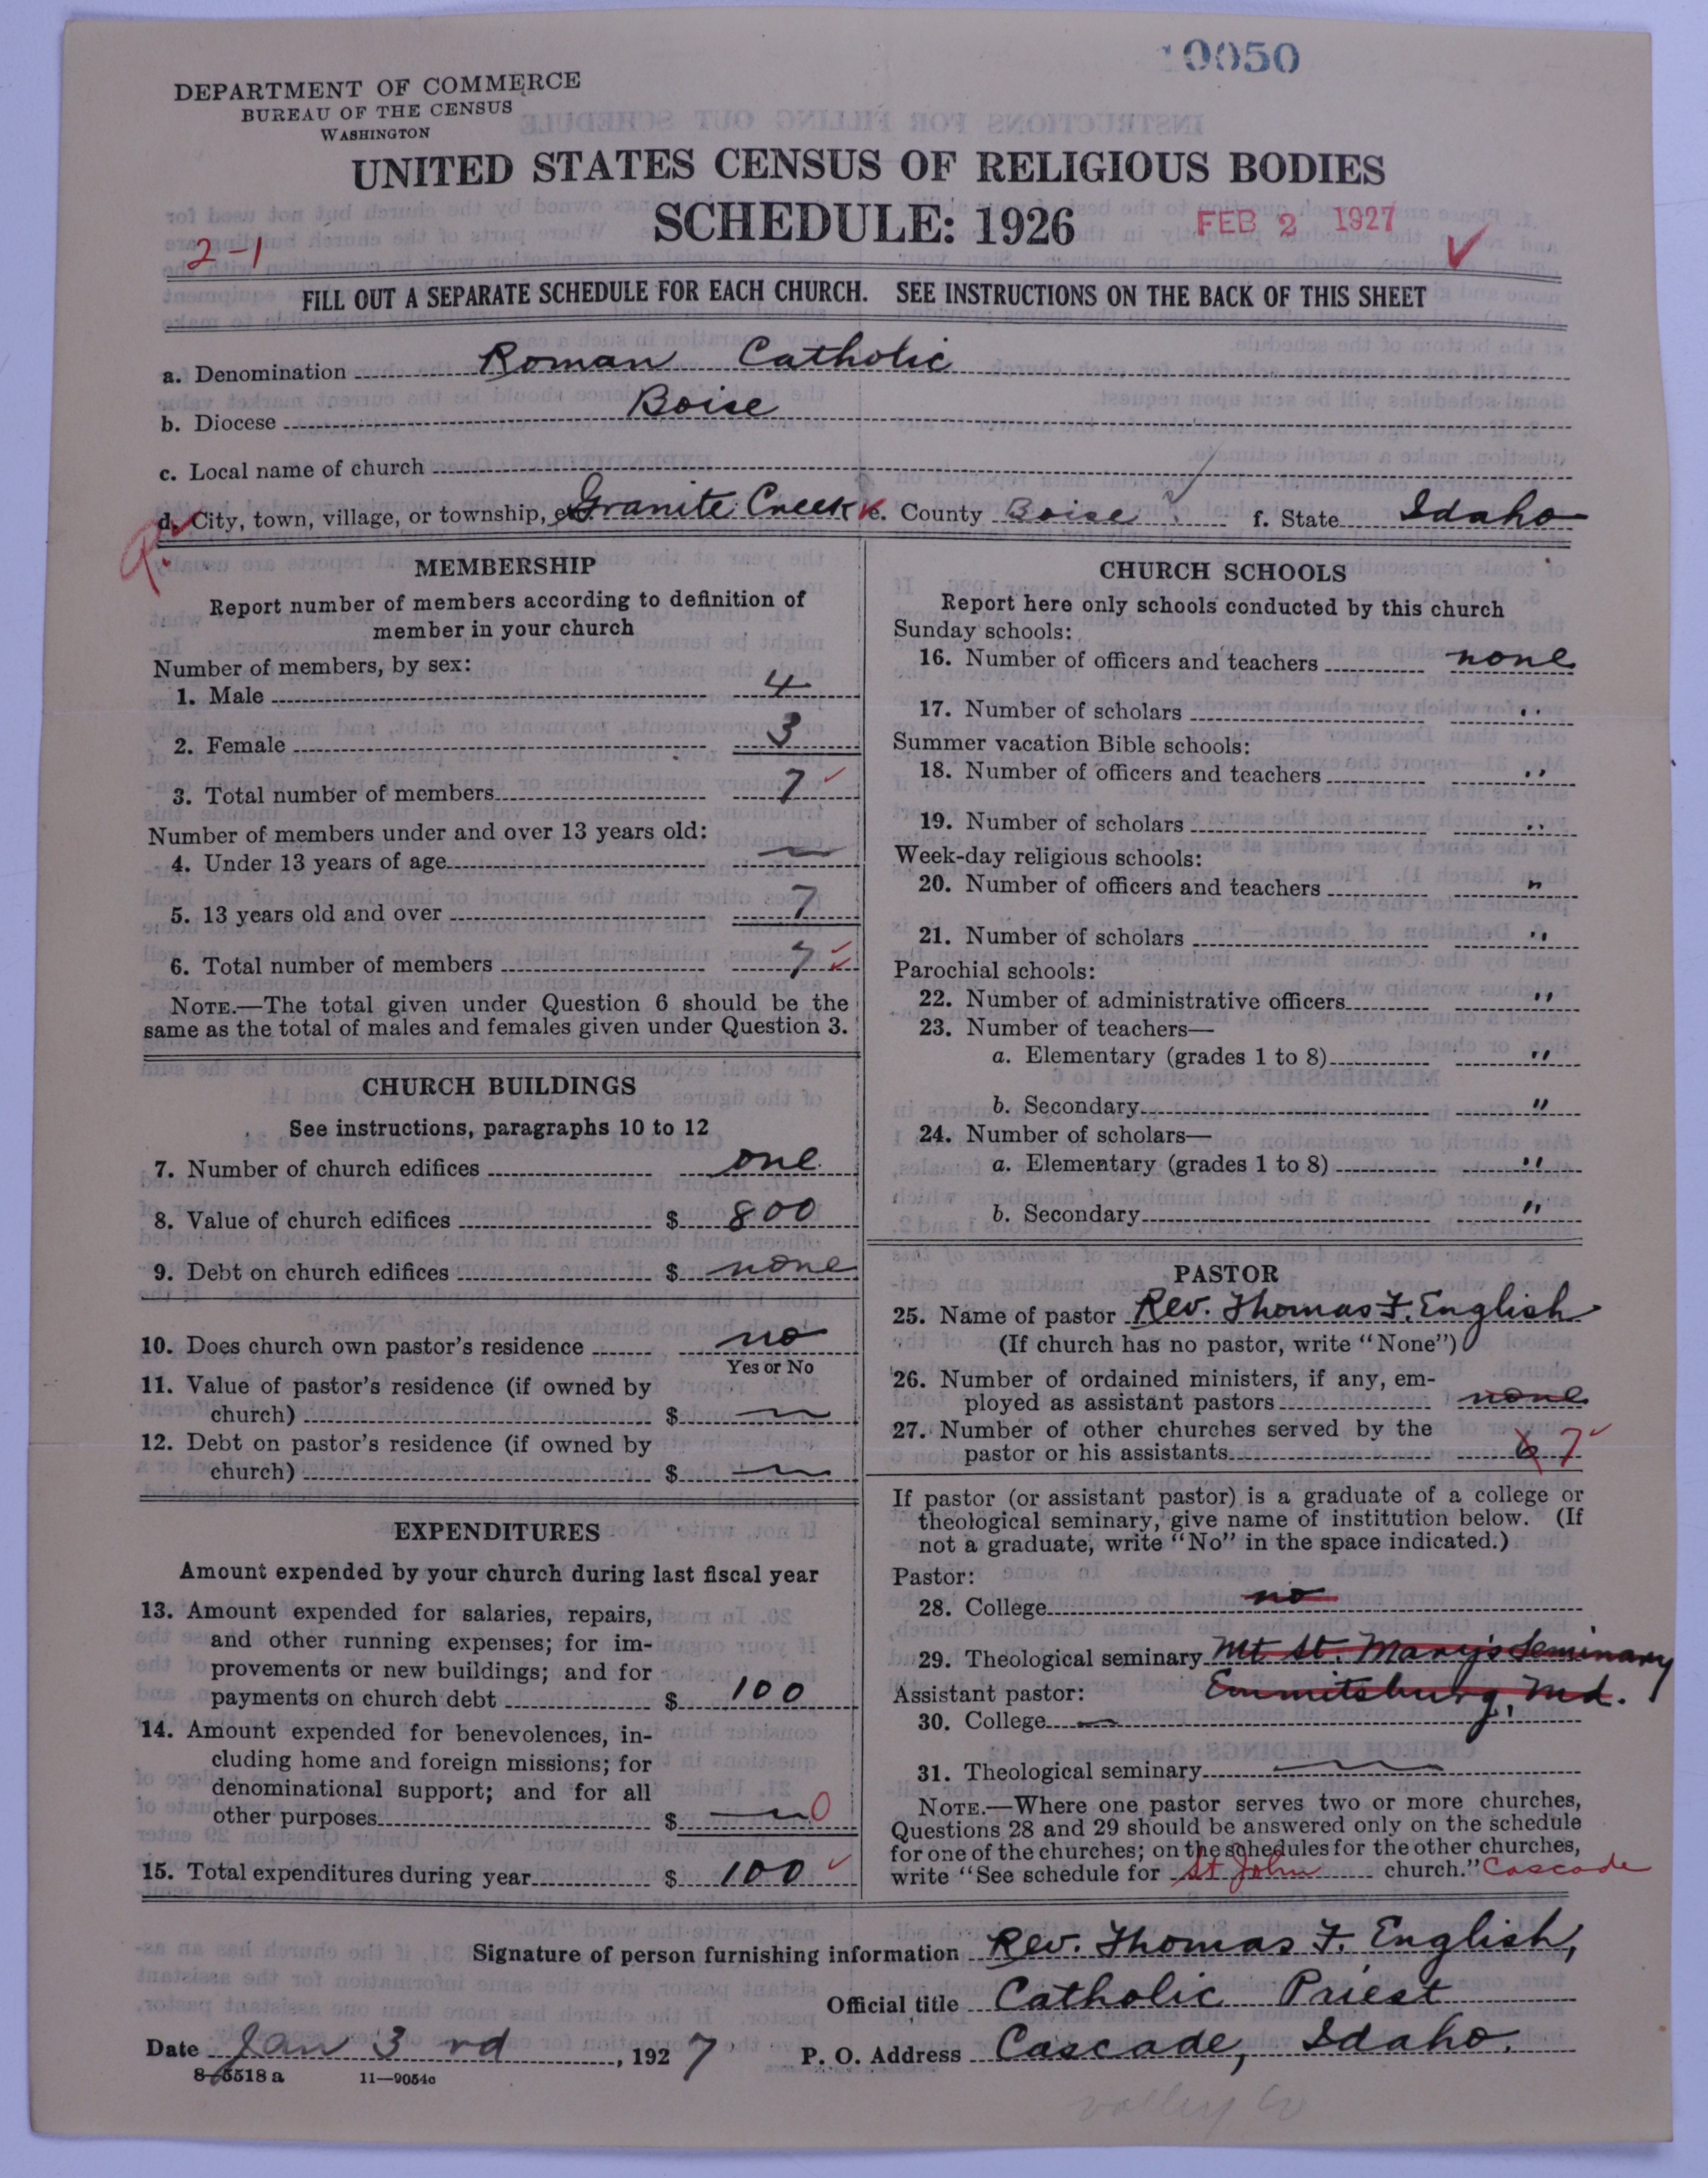 0050
DEPARTMENT OF COMMERCE
BUREAU OF THE CENSUS
WASHINGTON
UNITED STATES CENSUS OF RELIGIOUS BODIES
SCHEDULE: 1926
FEB 2 1927
2-1
FILL OUT A SEPARATE SCHEDULE FOR EACH CHURCH. SEE INSTRUCTIONS ON THE BACK OF THIS SHEET
a. Denomination Roman Catholic
b. Diocese Boise
c. Local name of church
d. City, town, village, or township, etc. Granite Creek e. County Boise f. State Idaho
MEMBERSHIP
Report number of members according to definition of
member in your church
Number of members, by sex:
1. Male 4
2. Female 3
3. Total number of members 7
Number of members under and over 13 years old:
4. Under 13 years of age —
5. 13 years old and over 7
6. Total number of members 7
NOTE.—The total given under Question 6 should be the
same as the total of males and females given under Question 3.
CHURCH BUILDINGS
See instructions, paragraphs 10 to 12
7. Number of church edifices one
8. Value of church edifices $ 800
9. Debt on church edifices $ none
10. Does church own pastor's residence no
Yes or No
11. Value of pastor's residence (if owned by
church) $ —
12. Debt on pastor's residence (if owned by
church) $ —
EXPENDITURES
Amount expended by your church during last fiscal year
13. Amount expended for salaries, repairs,
and other running expenses; for im-
provements or new buildings; and for
payments on church debt $ 100
14. Amount expended for benevolences, in-
cluding home and foreign missions; for
denominational support; and for all
other purposes $ — 0
15. Total expenditures during year $ 100
CHURCH SCHOOLS
Report here only schools conducted by this church
Sunday schools:
16. Number of officers and teachers none
17. Number of scholars "
Summer vacation Bible schools:
18. Number of officers and teachers "
19. Number of scholars "
Week-day religious schools:
20. Number of officers and teachers "
21. Number of scholars "
Parochial schools:
22. Number of administrative officers "
23. Number of teachers—
a. Elementary (grades 1 to 8) "
b. Secondary "
24. Number of scholars—
a. Elementary (grades 1 to 8) "
b. Secondary "
PASTOR
25. Name of pastor Rev. Thomas F. English
(If church has no pastor, write "None")
26. Number of ordained ministers, if any, em-
ployed as assistant pastors none
27. Number of other churches served by the
pastor or his assistants 6 7
If pastor (or assistant pastor) is a graduate of a college or
theological seminary, give name of institution below. (If
not a graduate, write "No" in the space indicated.)
Pastor:
28. College no
29. Theological seminary Mt St. Mary's Seminary
Emmitsburg, Md.
Assistant pastor:
30. College —
31. Theological seminary —
NOTE.—Where one pastor serves two or more churches,
Questions 28 and 29 should be answered only on the schedule
for one of the churches; on the schedules for the other churches,
write "See schedule for St John church." Cascade
Signature of person furnishing information Rev. Thomas F. English,
Official title Catholic Priest
Date Jan 3rd, 1927 P. O. Address Cascade, Idaho.
8-5518 a 11—9054c
valley Co